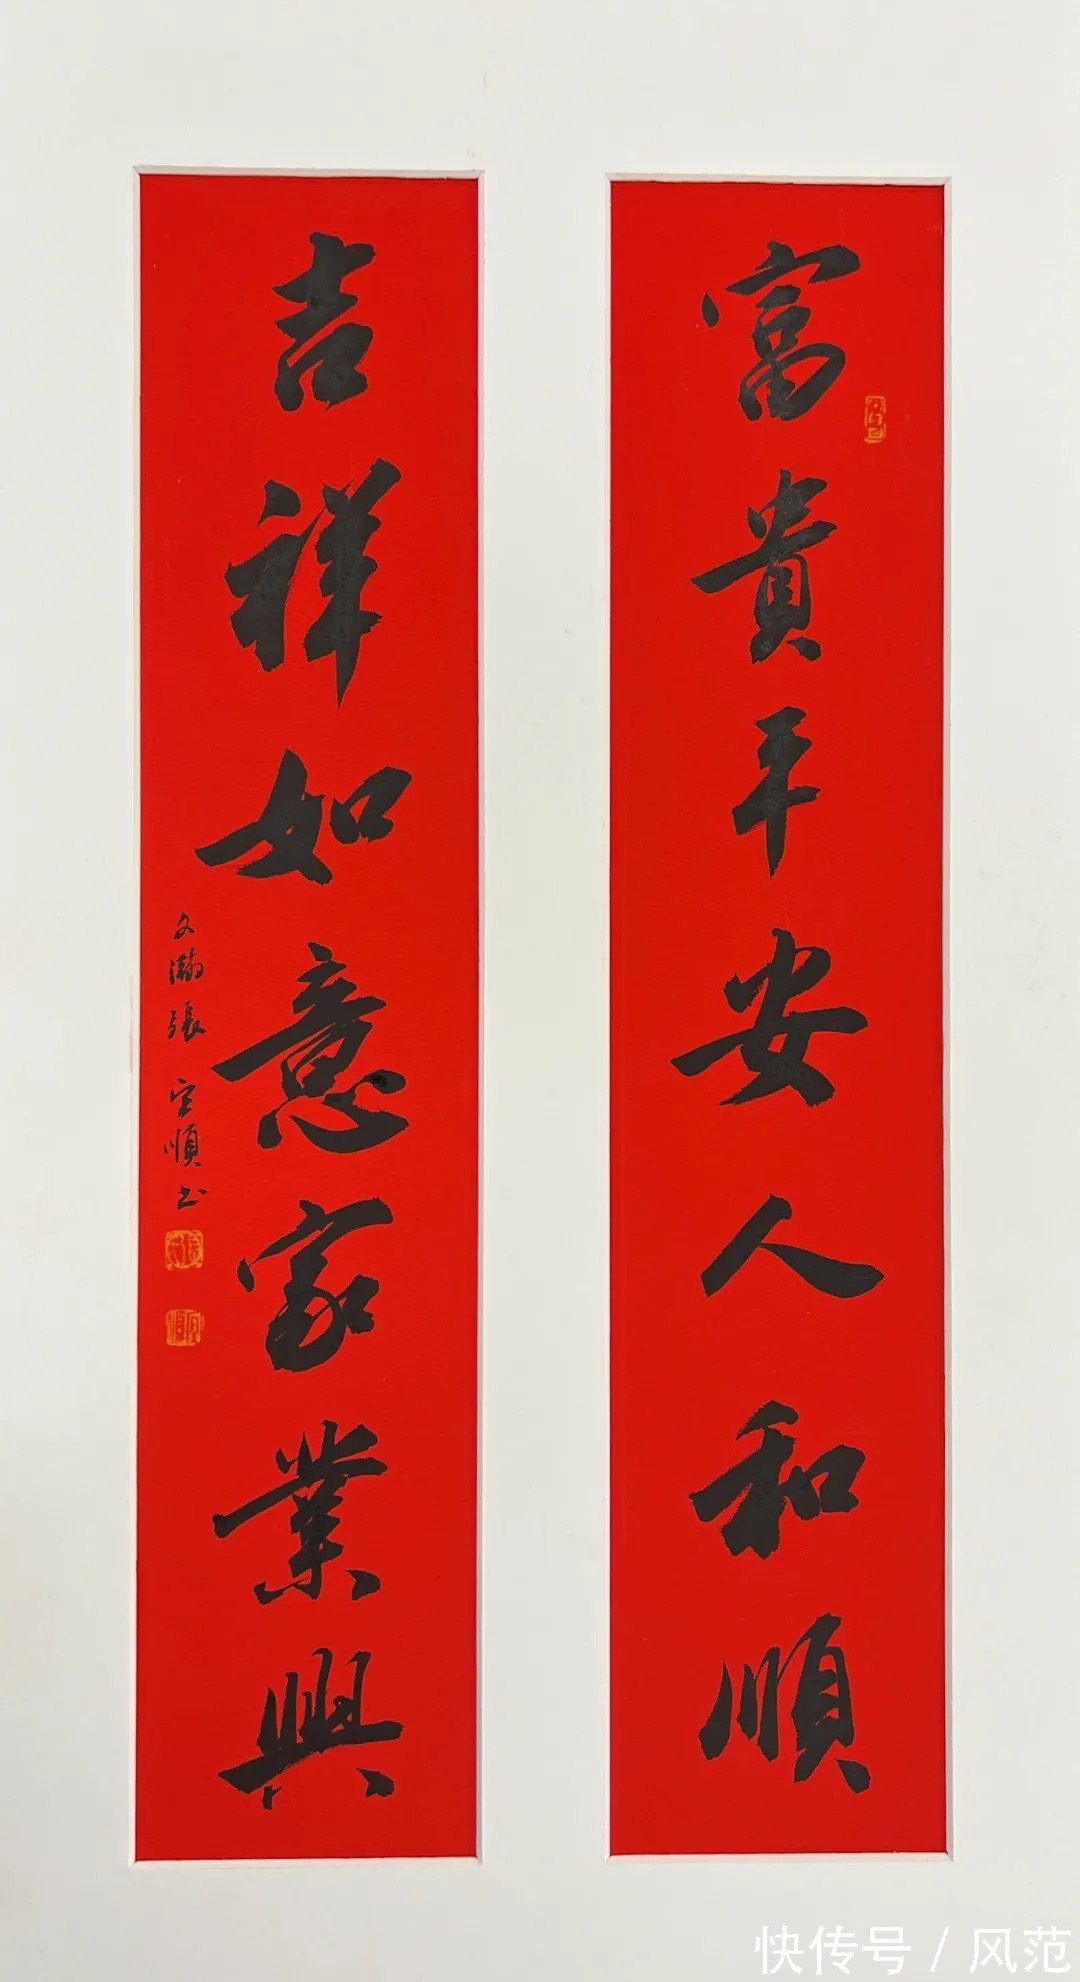 富貴平安人和順
吉祥如意家業興
文瀚張宝順书
快传号 / 风范